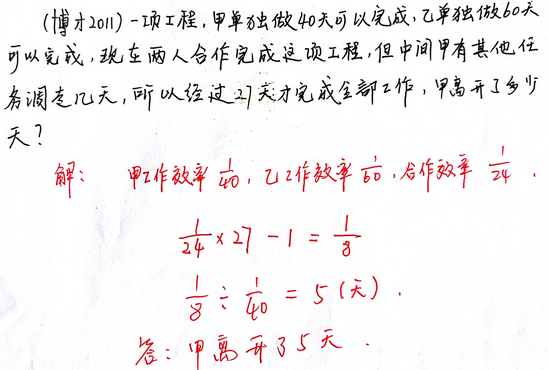 (博才2011)一项工程,甲单独做40天可以完成,乙单独做60天
可以完成,现在两人合作完成这项工程,但中间甲有其他任
务调走几天,所以经过27天才完成全部工作,甲离开了多少
天?
解: 甲工作效率 1/40, 乙工作效率 1/60, 合作效率 1/24.
1/24 × 27 - 1 = 1/8
1/8 ÷ 1/40 = 5 (天).
答:甲离开了5天.